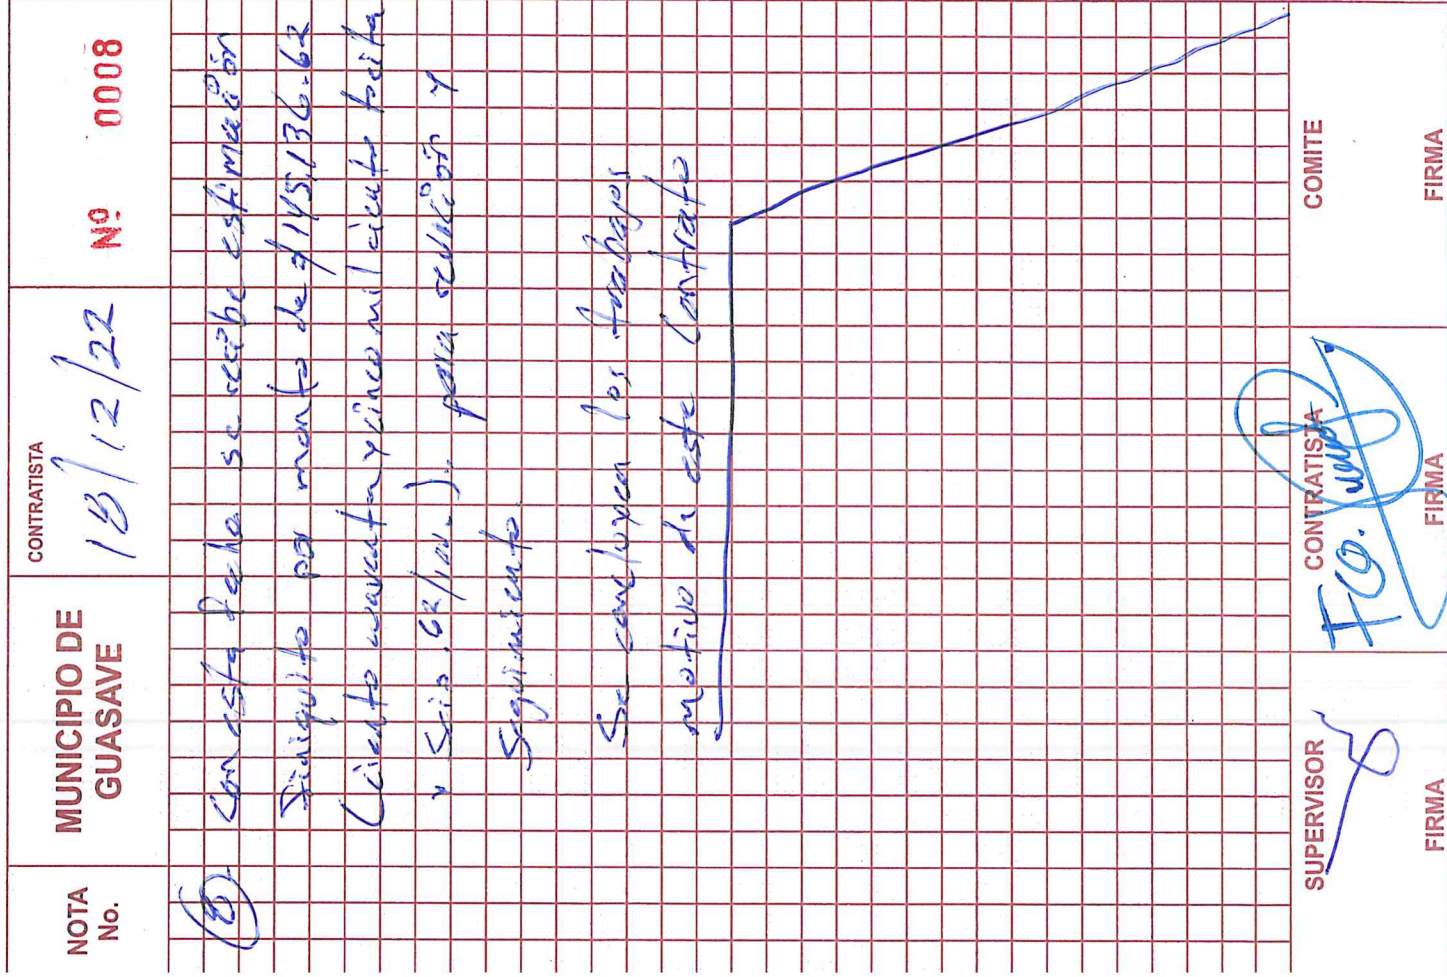 NOTA
No.
MUNICIPIO DE
GUASAVE
CONTRATISTA
18/12/22
Nº 0008
8 Con esta fecha se recibe estimación
Finiquito por monto de $145,136.62
(Ciento cuarenta y cinco mil ciento treinta
y Seis .62/100.). para revisión y
Seguimiento.
Se concluyen los trabajos
motivo de este Contrato
SUPERVISOR
CONTRATISTA
COMITE
FCO.
FIRMA
FIRMA
FIRMA